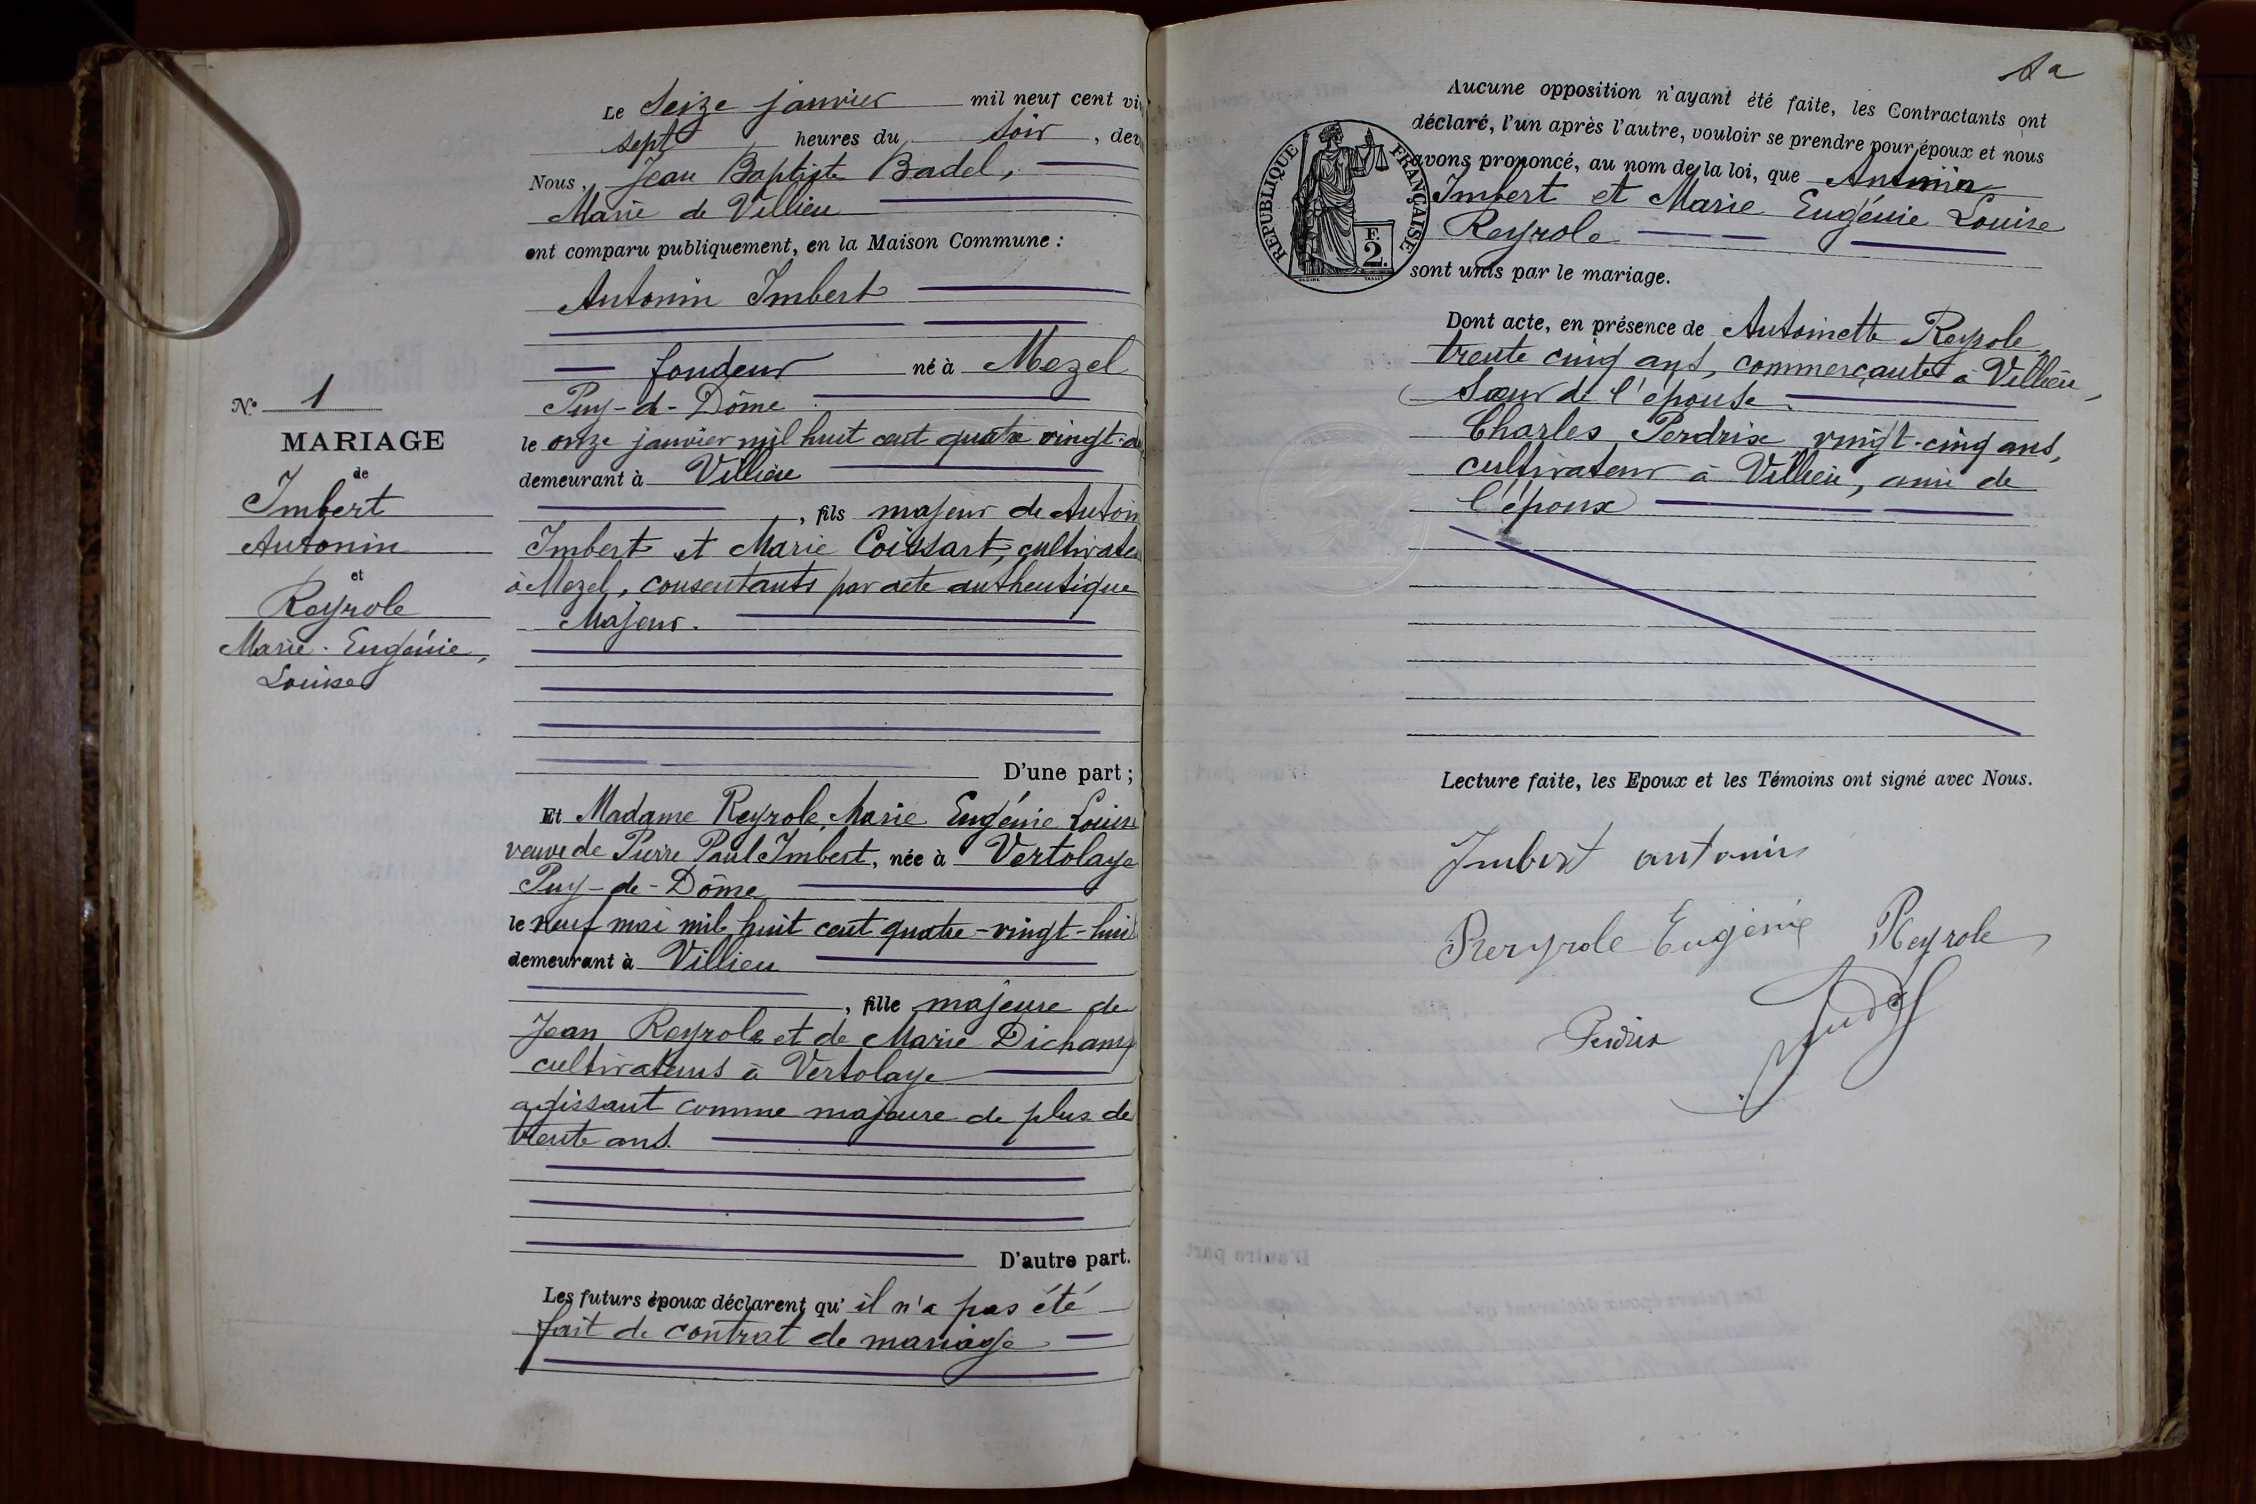 Le Seize janvier mil neuf cent vi
sept heures du soir, dev
Nous, Jean Baptiste Badel,
Maire de Villieu
ont comparu publiquement, en la Maison Commune :
Antonin Imbert
fondeur né à Mezel
Puy-d-Dôme
le onze janvier mil huit cent quatre vingt-d
demeurant à Villieu
, fils majeur de Anton
Imbert et Marie Coissart, cultivate
à Mezel, consentants par acte authentique
Majeur.
D'une part ;
Et Madame Reyrole, Marie Eugénie Louise
veuve de Pierre Paul Imbert, née à Vertolaye
Puy-de-Dôme
le neuf mai mil huit cent quatre-vingt-huit
demeurant à Villieu
, fille majeure de
Jean Reyrole et de Marie Dichamp
cultivateurs à Vertolaye
agissant comme majeure de plus de
trente ans.
D'autre part.
Les futurs époux déclarent qu' il n'a pas été
fait de contrat de mariage
N° 1
MARIAGE
de
Imbert
Antonin
et
Reyrole
Marie-Eugénie,
Louise
Aucune opposition n'ayant été faite, les Contractants ont
déclaré, l'un après l'autre, vouloir se prendre pour époux et nous
avons prononcé, au nom de la loi, que Antonin
Imbert et Marie Eugénie Louise
Reyrole
sont unis par le mariage.
RÉPUBLIQUE FRANÇAISE
F.
2.
Dont acte, en présence de Antoinette Reyrole,
trente cinq ans, commerçante à Villieu,
Sœur de l'épouse.
Charles Perdrix, vingt-cinq ans,
cultivateur à Villieu, ami de
l'époux
Lecture faite, les Epoux et les Témoins ont signé avec Nous.
Imbert antonin
Reryrole Eugénie Reyrole
Perdrix